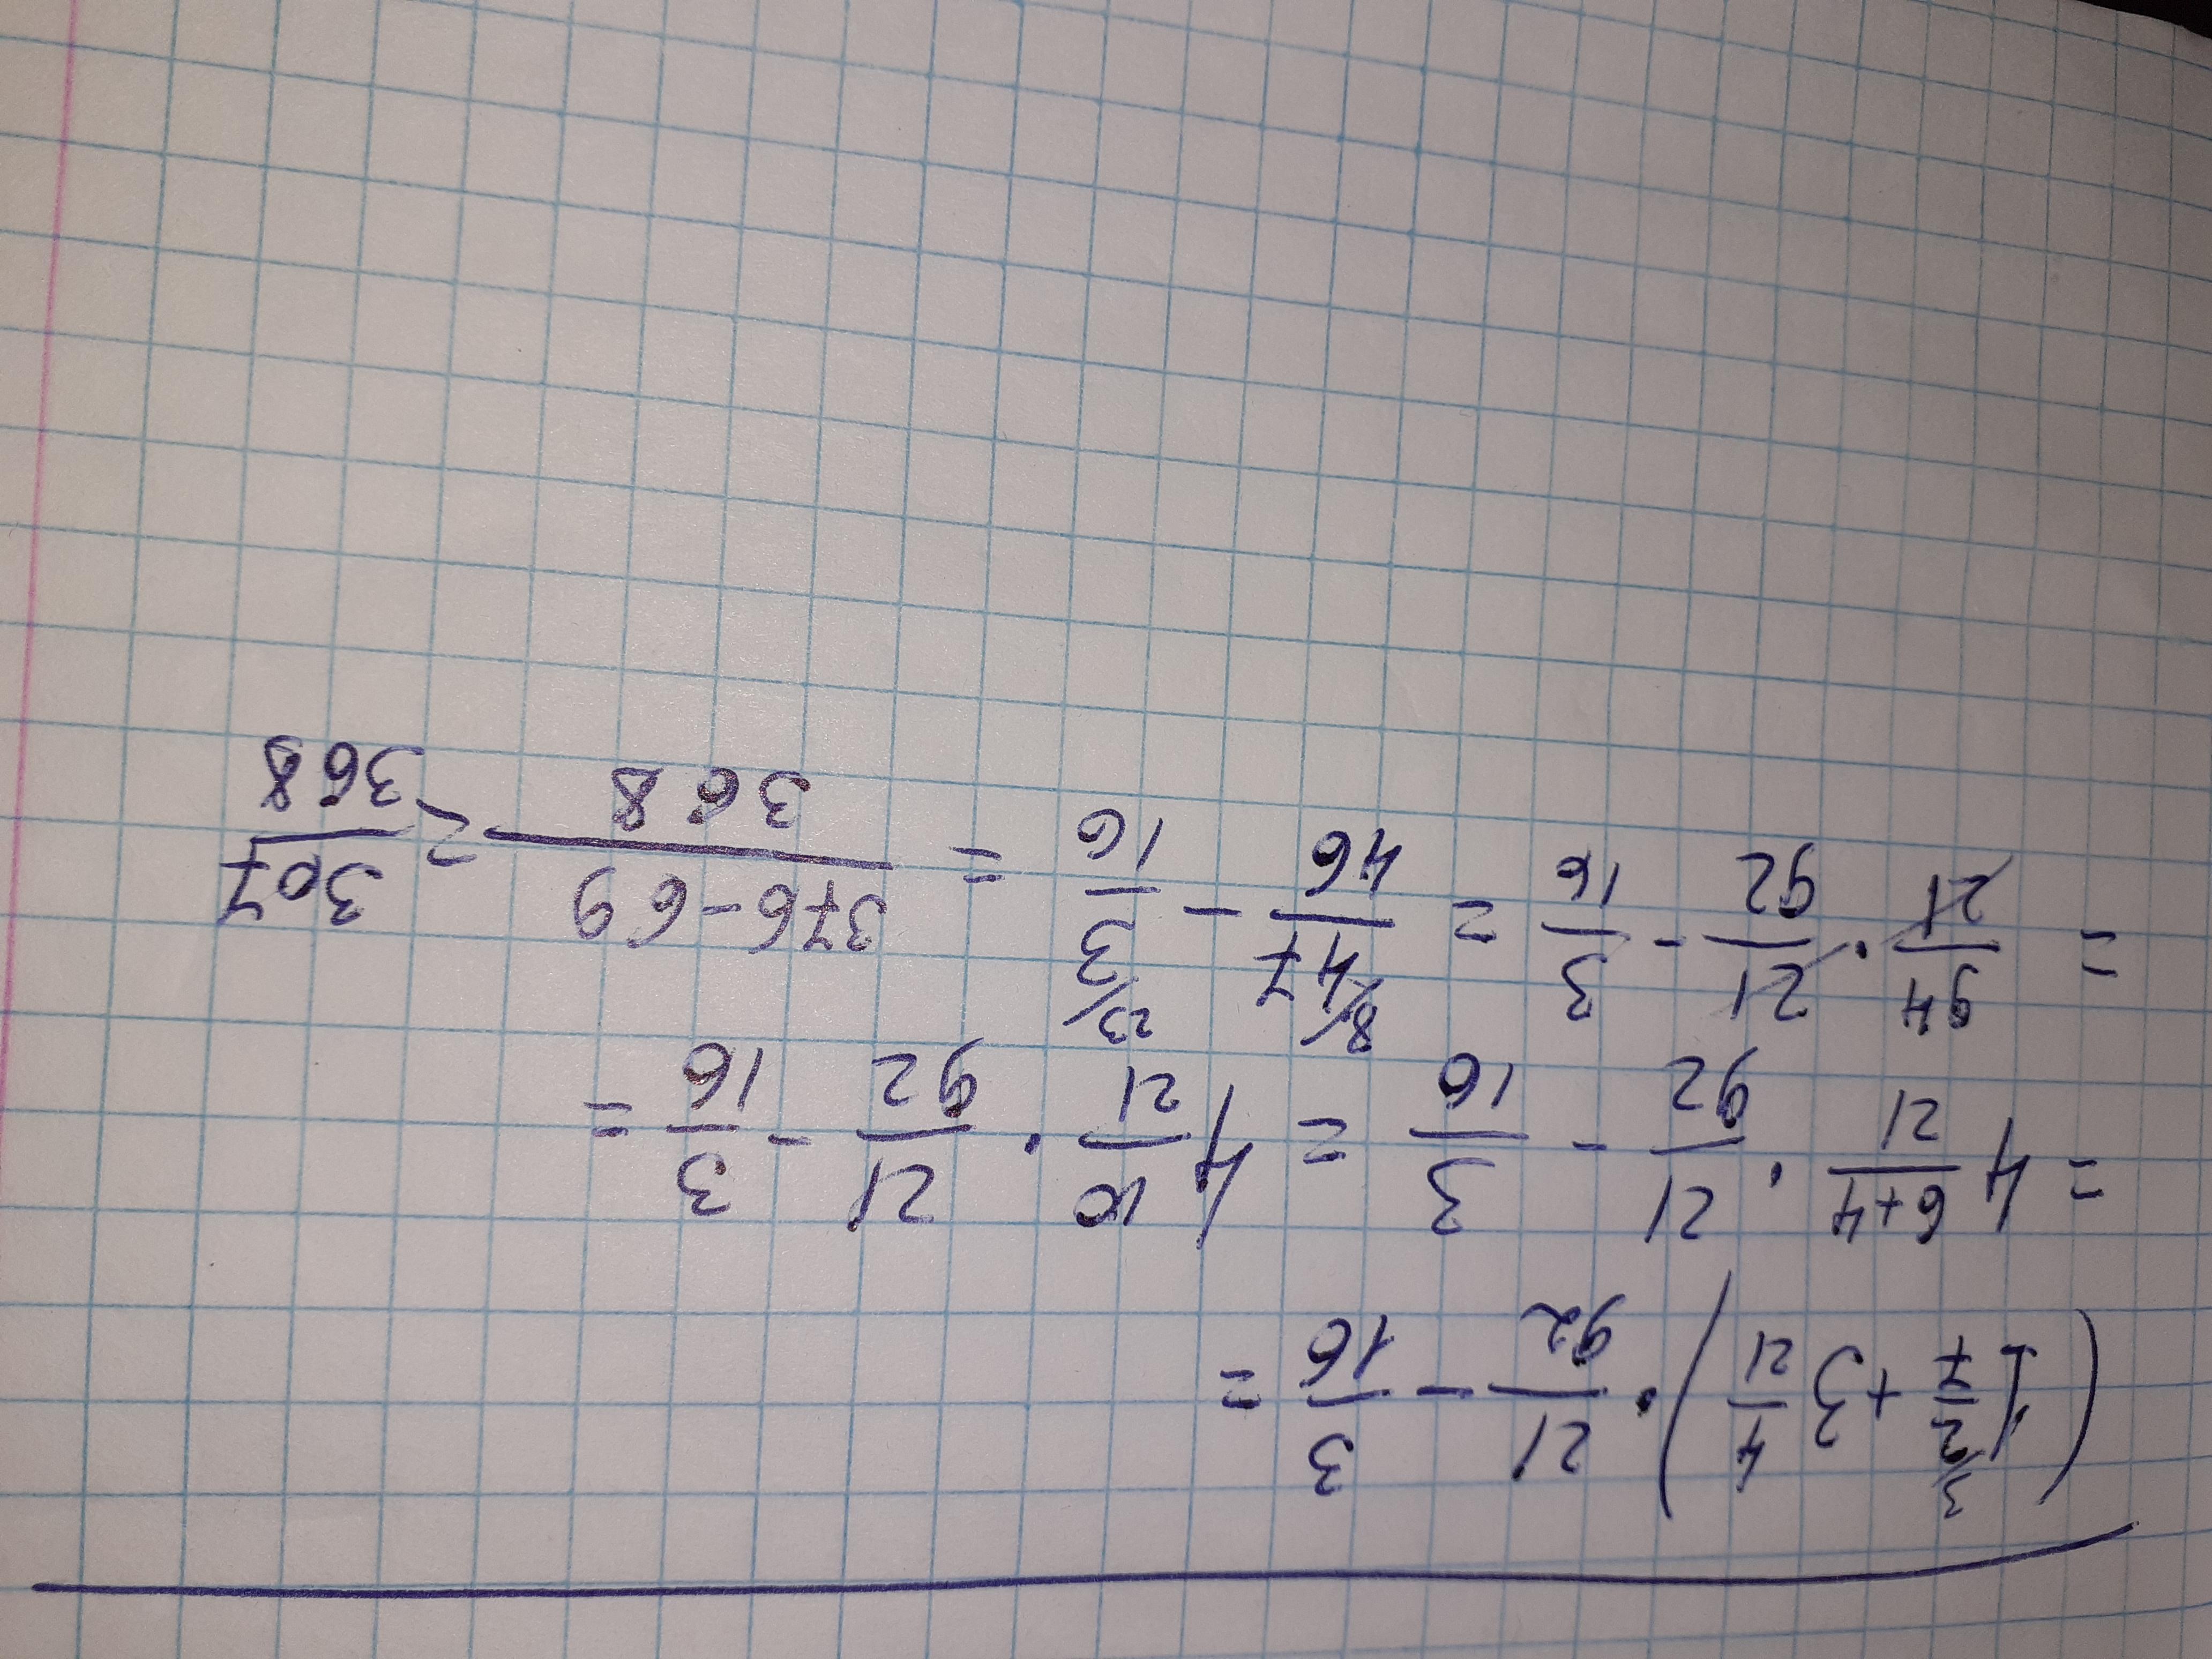 (1 2/7 + 3 4/21) · 21/92 - 3/16 =
= 4 6+4/21 · 21/92 - 3/16 = 4 10/21 · 21/92 - 3/16 =
= 94/21 · 21/92 - 3/16 = 47/46 - 3/16 = 376-69/368 = 307/368